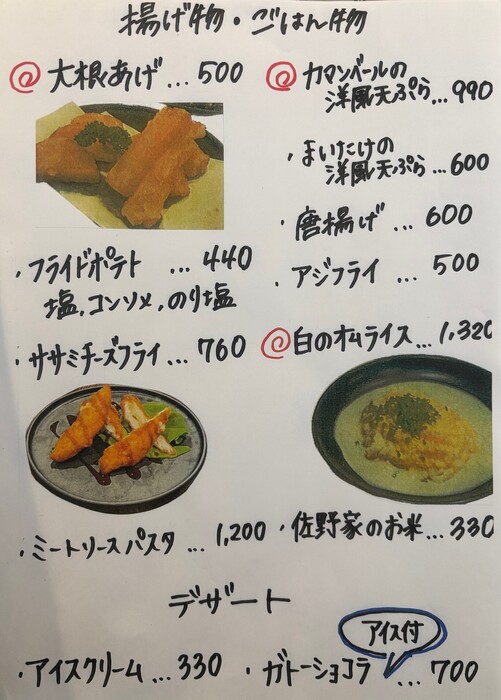 揚げ物・ごはん物
@大根あげ…500
@カマンベールの
洋風天ぷら…990
・まいたけの
洋風天ぷら…600
・唐揚げ…600
・フライドポテト…440
塩,コンソメ,のり塩
・アジフライ…500
・ササミチーズフライ…760
@白のオムライス…1,320
・ミートソースパスタ…1,200
・佐野家のお米…330
デザート
アイス付
・アイスクリーム…330
・ガトーショコラ…700